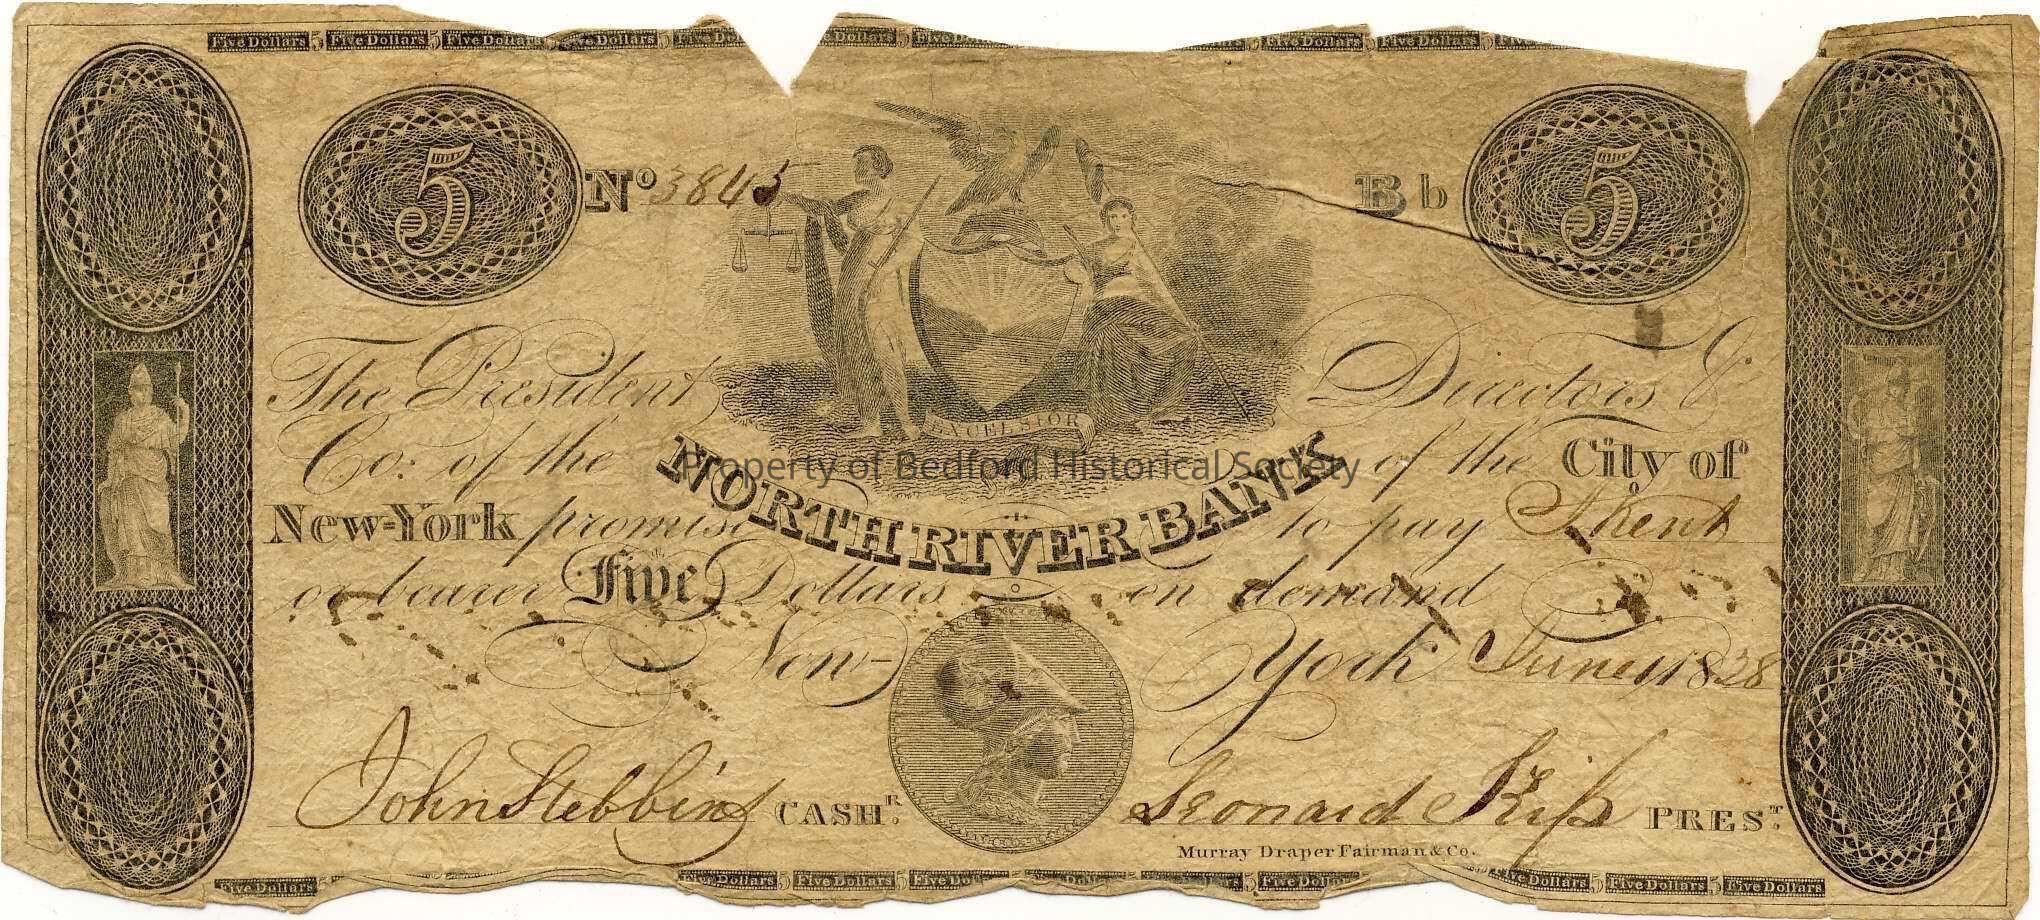 Five Dollars 5 Five Dollars 5 Five Dollars Five Dollars 5 Five D Dollars 5 Five D 5 Five Dollars 5 Five Dollars 5
5 5
No 3845 Bb
EXCELSIOR
The President Directors &
Co: of the NORTH RIVER BANK of the City of
New-York promise to pay J. Kent
or bearer Five Dollars on demand
New-York June 1 1828
John Stebbins CASHR. Leonard Kip PREST.
Murray Draper Fairman & Co.
Five Dollars Five Dollars 5 Five Dollars 5 Five Do Dolla 5 Five Dol Five Dollars 5 Five Dollars 5 Five Dollars
Property of Bedford Historical Society